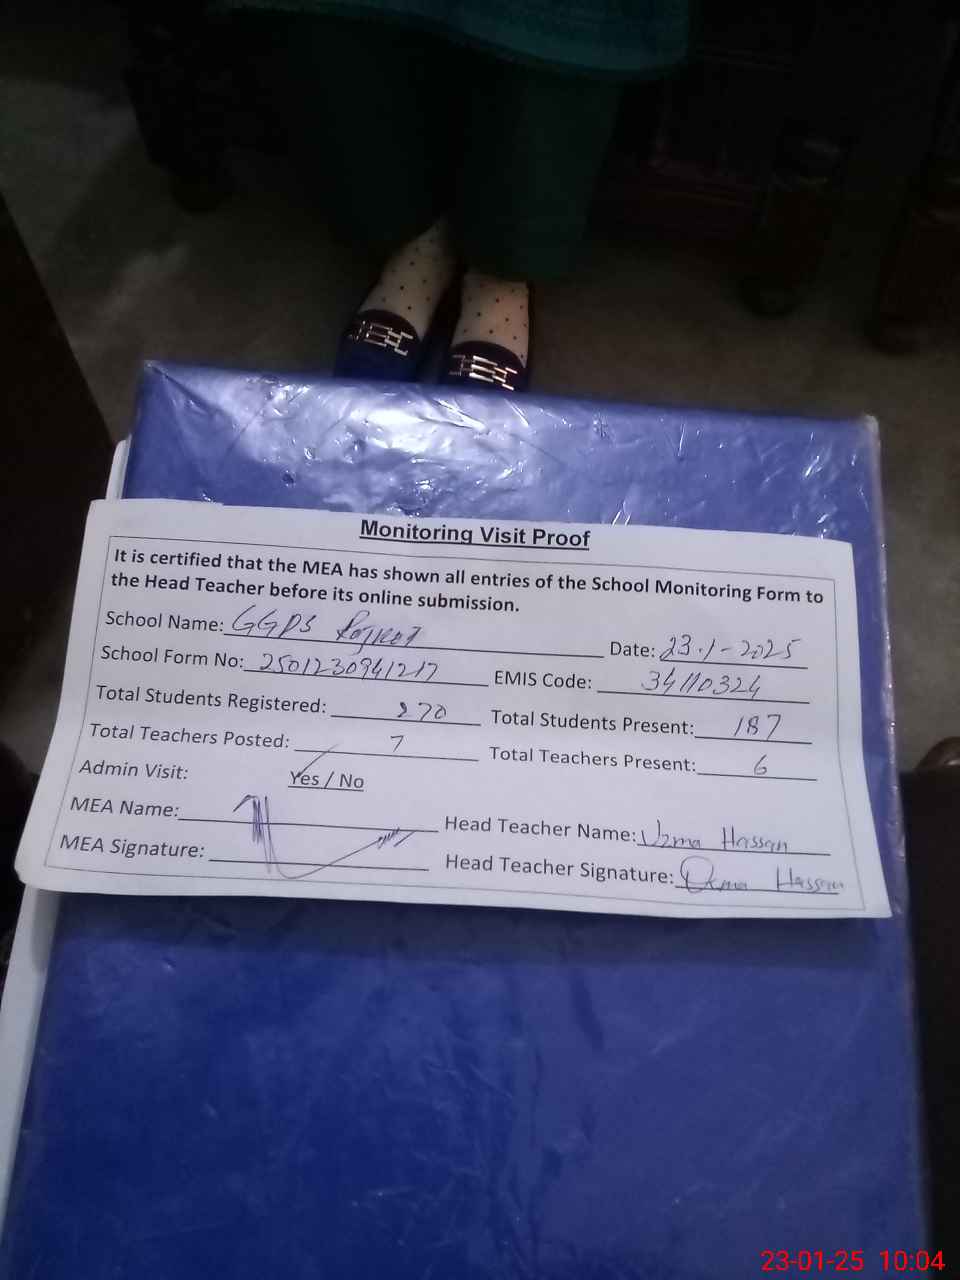 Monitoring Visit Proof
It is certified that the MEA has shown all entries of the School Monitoring Form to
the Head Teacher before its online submission.
School Name: GGPS Date: 23-1-2025
School Form No: 2501230941217 EMIS Code: 34110324
Total Students Registered: 270 Total Students Present: 187
Total Teachers Posted: 7 Total Teachers Present: 6
Admin Visit: Yes / No
MEA Name: Head Teacher Name: Uzma Hassan
MEA Signature: Head Teacher Signature: Uzma Hassan
23-01-25 10:04